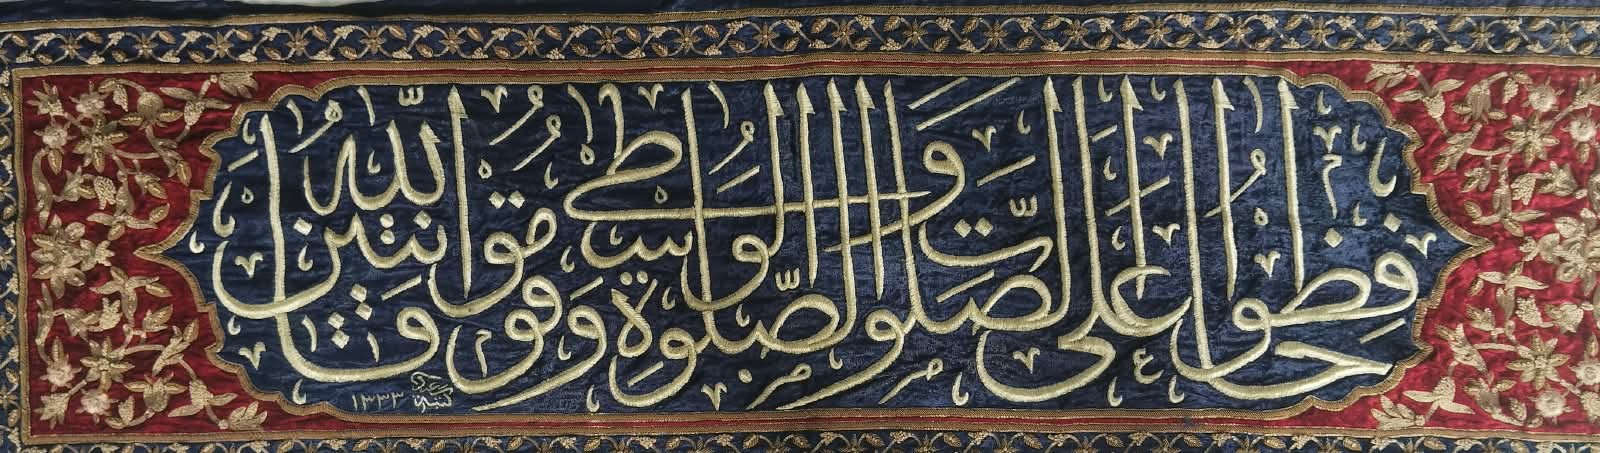 حَافِظُوا عَلَى الصَّلَوَاتِ وَالصَّلٰوةِ الْوُسْطٰى وَقُومُوا لِلّٰهِ قَانِتِينَ
١٣٣٣